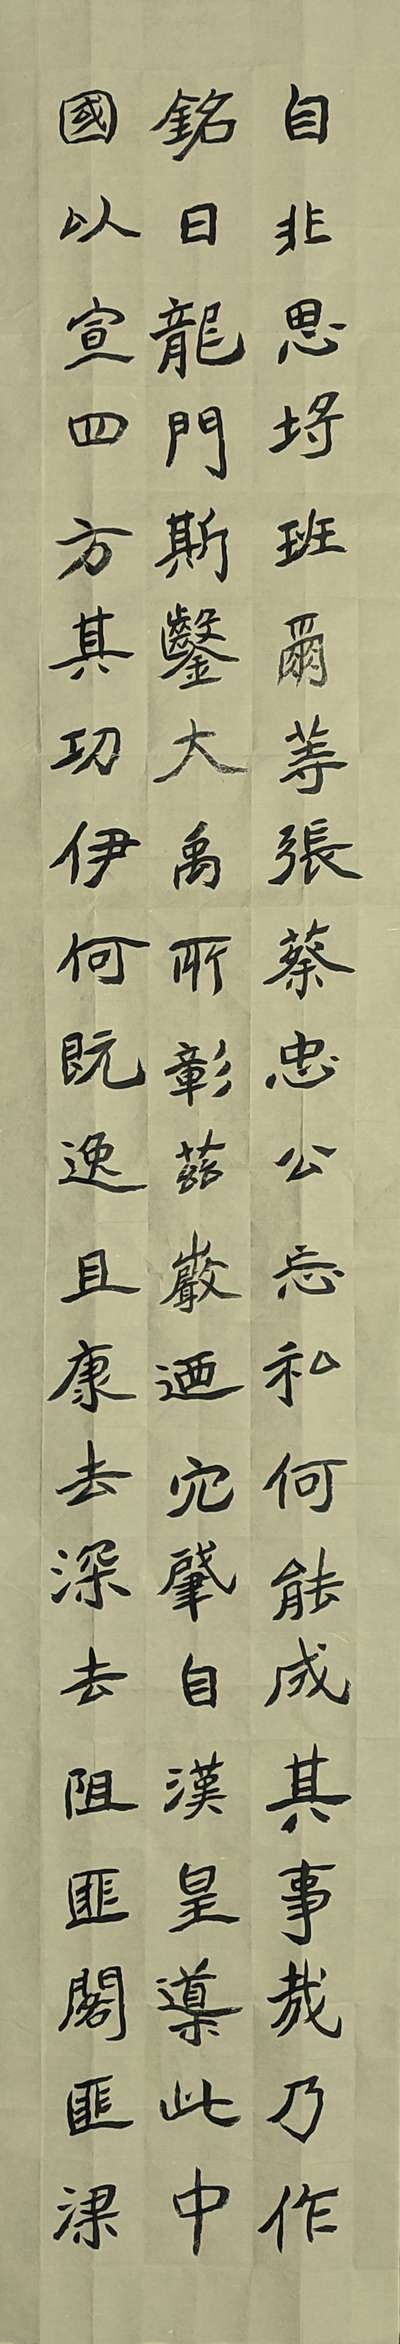 自非思埒班爾等張蔡忠公忘私何能成其事哉乃作
銘曰龍門斯鑿大禹所彰茲巖迺穴肇自漢皇導此中
國以宣四方其功伊何既逸且康去深去阻匪閣匪梁